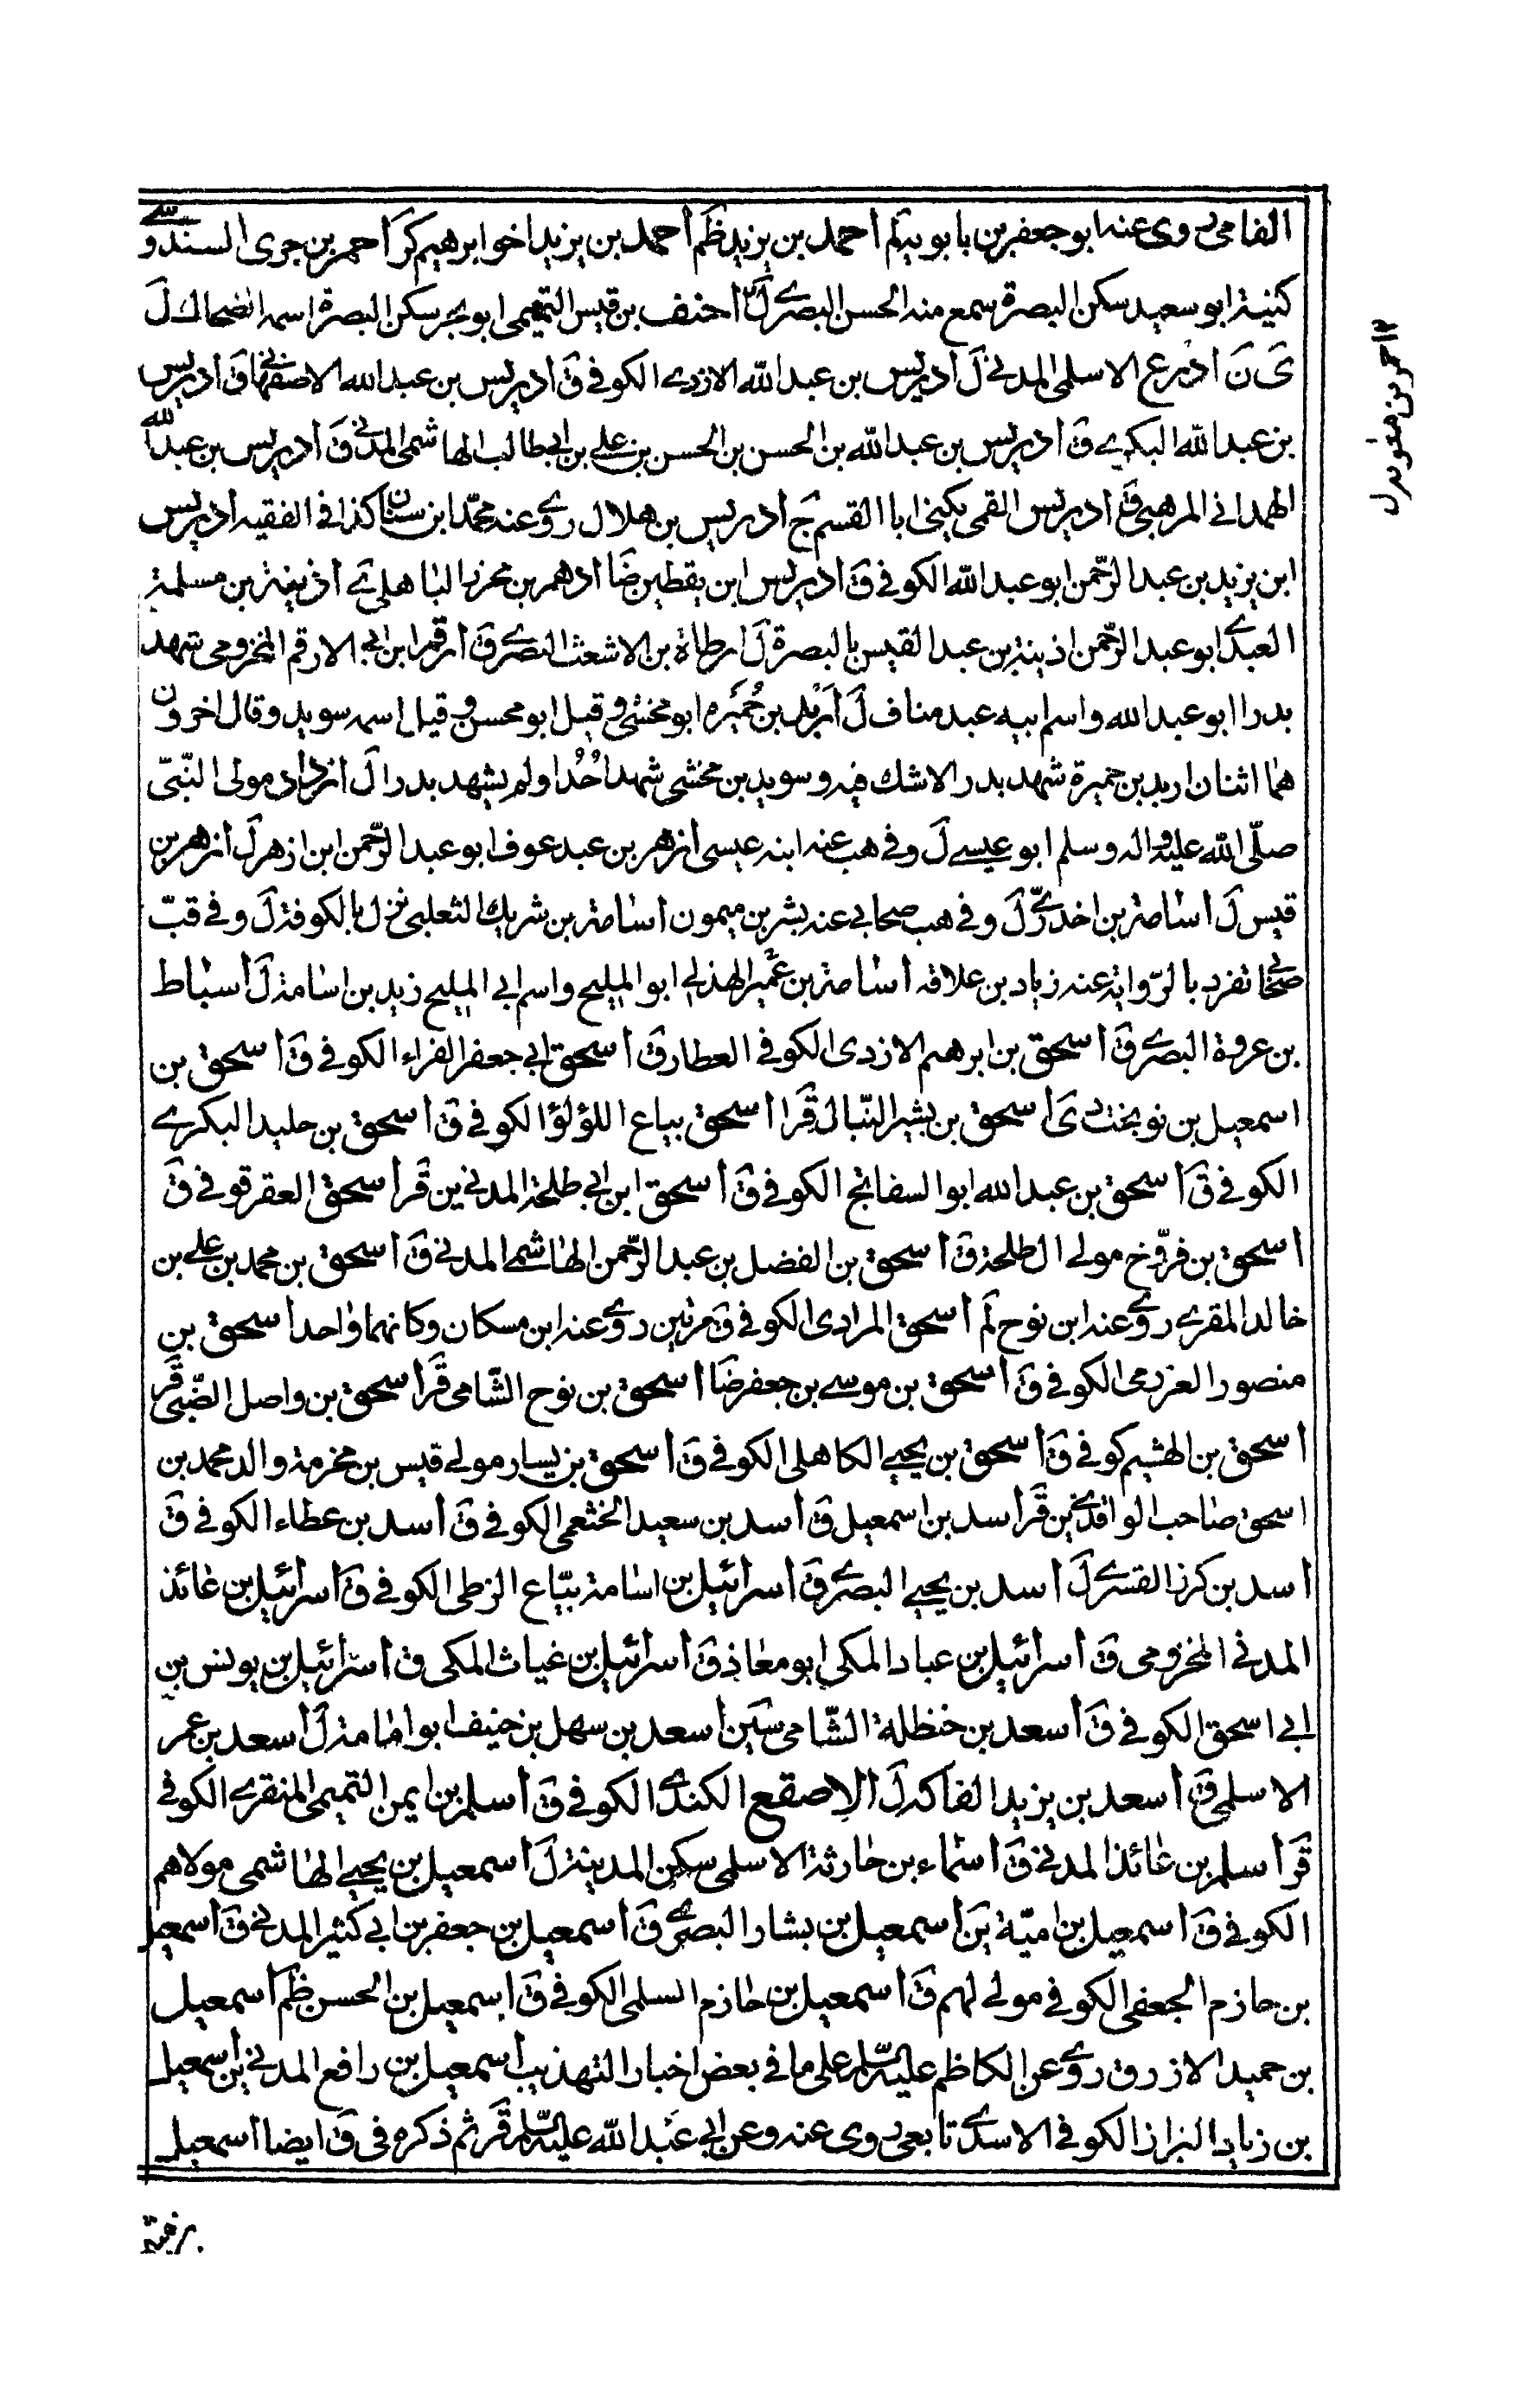 الفامی روی عنه ابو جعفر بن بابویه لم أحمد بن یزید ظم أحمد بن یزید اخو ابرهیم کر أحمر بن جری السندوسی
کنیته ابو سعید سکن البصرة سمع منه الحسن البصرے لَ أحنف بن قیس التمیمی ابو بحر سکن البصرة اسمه الضحاك لَ
یَ نَ أدرع الاسلمی المدنی لَ أدریس بن عبد اللّه الازدے الکوفی قَ أدریس بن عبد الله الاصفهانی قَ أدریس
بن عبد اللّه البکرے قَ أدریس بن عبد اللّه بن الحسن بن الحسن بن علی بن ابی طالب الهاشمی المدنی قَ أدریس بن عبد اللّه
الهمدانی المرهبی قَ أدریس القمی یکنی ابا القسم جَ أدریس بن هلال روی عنه محمّد ابن سنان کذا فی الفقیه أدریس
ابن یزید بن عبد الرّحمن ابو عبد اللّه الکوفی قَ أدریس ابن یقطین ضَا أدهم بن محرز الباهلی یَ أذینة بن مسلمة
العبدی ابو عبد الرّحمن اذینة بن عبد القیس بالبصرة لَ أرطاة بن الاشعث البصرے قَ أرقم ابن ابی الارقم المخزومی شهد
بدرا ابو عبد الله واسم ابیه عبد مناف لَ أَرْبَد بن حُمَیْرَه ابو مخشی و قیل ابو محسن و قیل اسمه سوید و قال اخرون
هما اثنان اربد بن حمیرة شهد بدر الاشك فیه و سوید بن مخشی شهد اُحُدا ولم یشهد بدرا لَ أزداد مولی النّبیّ
صلّی اللّه علیه واله وسلم ابو عیسے لَ وفی هب عنه ابنه عیسی أزهر بن عبد عوف ابو عبد الرّحمن ابن ازهر لَ أزهر بن
قیس لَ أسامة بن اخدرّی لَ وفی هب صحابی عنه بشر بن میمون أسامة بن شریك الثعلبی نزل بالکوفة لَ وفی قبّ
صحابی تفرد بالرّوایة عنه زیاد بن علاقه أسامة بن عُمیر الهذلی ابو الملیح واسم ابی الملیح زید بن اسامة لَ أسباط
بن عروة البصرے قَ أسحق بن ابرهیم الازدی الکوفی العطار قَ أسحق ابی جعفر الفراء الکوفی قَ أسحق بن
اسمعیل بن نوبخت دیَ أسحق بن بشیر النّبال قَر أسحق بیاع اللؤلؤ الکوفی قَ أسحق بن حلید البکرے
الکوفی قَ أسحق بن عبد الله ابو السفاتج الکوفی قَ أسحق ابن ابی طلحة المدنی ین قَر أسحق العقرقوفی قَ
أسحق بن فرّوخ مولی ال طلحة قَ أسحق بن الفضل بن عبد الرّحمن الهاشمی المدنی قَ أسحق بن محمد بن علی بن
خالد المقرے روی عنه ابن نوح لَم أسحق المرادی الکوفی قَ مرتین روی عنه ابن مسکان وکانهما واحد أسحق بن
منصور العزرمی الکوفی قَ أسحق بن موسی بن جعفر ضَا أسحق بن نوح الشّامی قَر أسحق بن واصل الضّبیّ قَر
أسحق بن الهشیم کوفی قَ أسحق بن یحیی الکاهلی الکوفی قَ أسحق بن یسار مولی قیس بن مخرمة والد محمد بن
اسحق صاحب الواقدی ین قَر أسد بن اسمعیل قَ أسد بن سعید الخثعمی الکوفی قَ أسد بن عطاء الکوفی قَ
أسد بن کرز القسرے لَ أسد بن یحیی البصرے قَ أسرائیل بن اسامة بیّاع الزطی الکوفی قَ أسرائیل بن عائذ
المدنی المخزومی قَ أسرائیل بن عباد المکی ابو معاذ قَ أسرائیل بن غیاث المکی ق أسرائیل بن یونس بن
ابی اسحق الکوفی قَ أسعد بن حنظلة الشّامی سَین أسعد بن سهل بن حنیف ابو امامة لَ أسعد بن عمر
الاسلمی قَ أسعد بن یزید الفاکه لَ ألاصقع الکندی الکوفی قَ أسلم بن ایمن التمیمی المنقرے الکوفی
قَر أسلم بن عائذ المدنی قَ أسماء بن حارثة الاسلمی سکن المدینة لَ أسمعیل بن یحیی الهاشمی مولاهم
الکوفی قَ أسمعیل بن امیّة یَن أسمعیل بن بشار البصرے قَ أسمعیل بن جعفر بن ابی کثیر المدنی قَ أسمعیل
بن حازم الجعفی الکوفی مولی لهم قَ أسمعیل بن حازم السلمی الکوفی قَ أسمعیل بن الحسن ظَم أسمعیل
بن حمید الازرق روی عن الکاظم علیه السّلام علی ما فی بعض اخبار التهذیب أسمعیل بن رافع المدنی ین أسمعیل
بن زیاد البزاز الکوفی الاسدی تابعی روی عنه وعن ابی عَبد اللّه علیه السّلام قَر ثم ذکره فی قَ ایضا أسمعیل